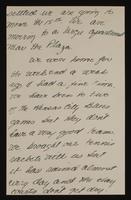 settled we are going to
move the 15th. We are
moving to a large apartment
near the Plaza.
We were home for
the weekend a week
ago & had a fine time.
We have been to two
of the Kansas City Blues
games but they don't
have a very good team.
We brought our tennis
rackets with us but
it has rained almost
every day and the clay
courts don't get dry